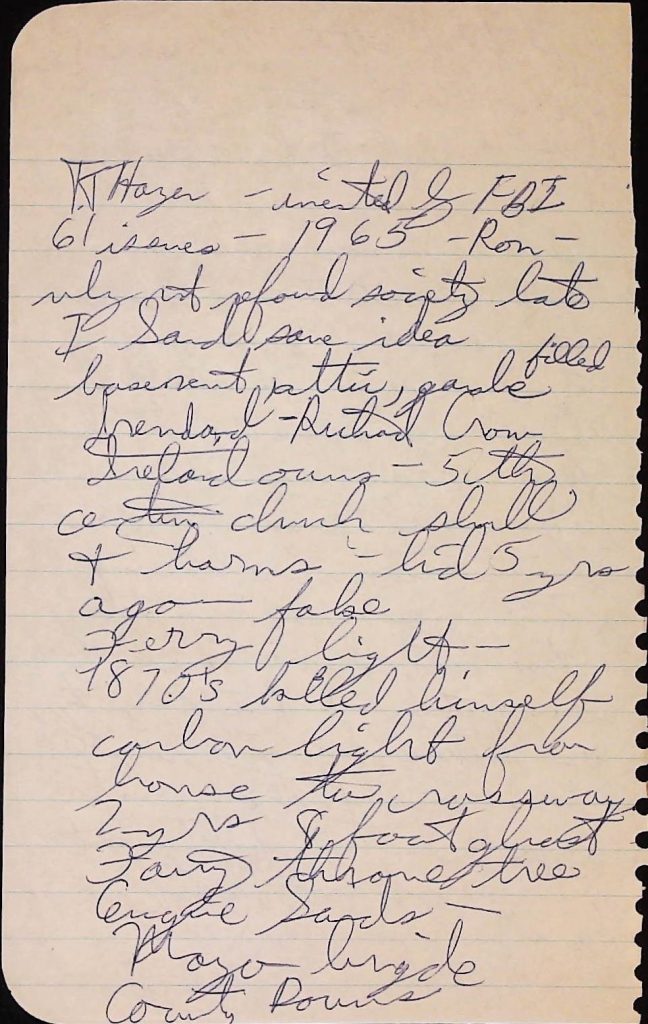 Hazer - invented by FBI
61 issues - 1965 - Ron -
why not refound society late
I Sand same idea
basement, attic, garage filled
- Richard Crow
Ireland ouns - 5 th
century church skull
+ harns - hid 5 yrs
ago - fake
Ferry light -
1870's killed himself
carbon light from
house to crossway
2 yrs 8 foot ghost
Fairy throne tree
Sands -
Mayo brigde
County Downs